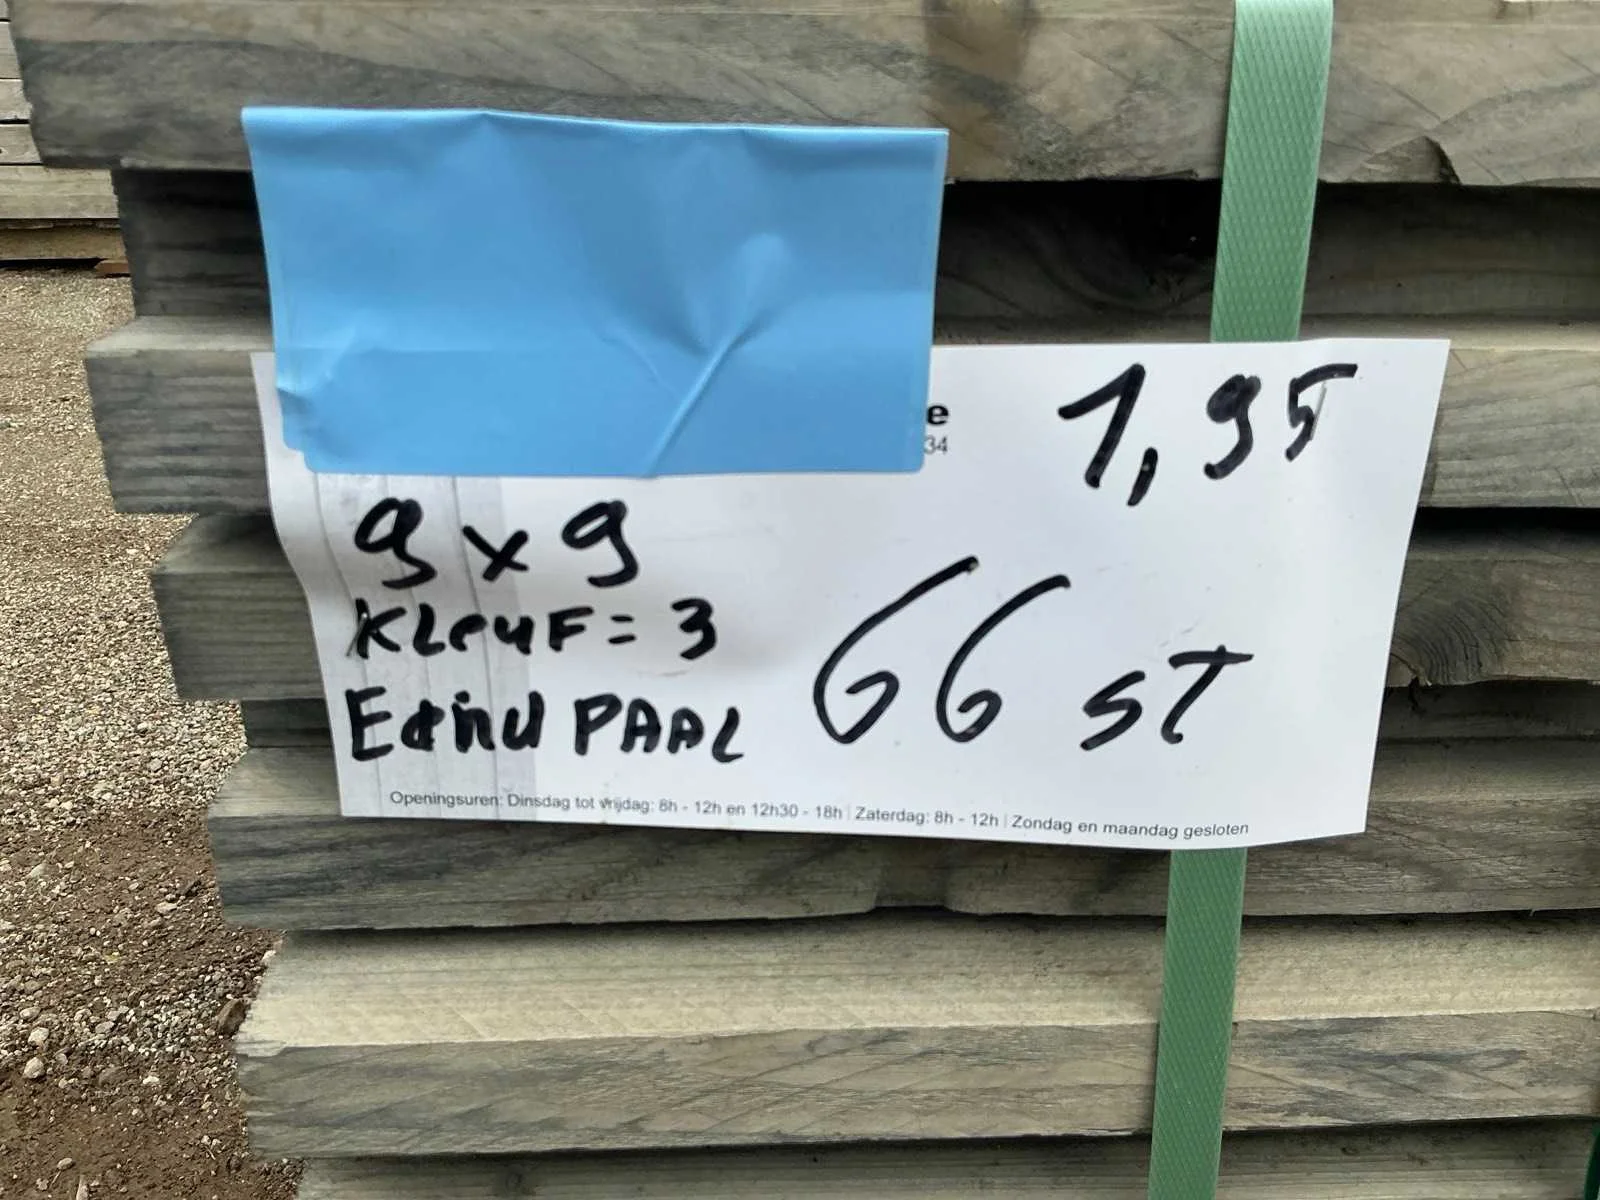 e
34
1,95
9 x 9
KLEUF = 3
EdiNd PAAL
66 ST
Openingsuren: Dinsdag tot vrijdag: 8h - 12h en 12h30 - 18h | Zaterdag: 8h - 12h | Zondag en maandag gesloten